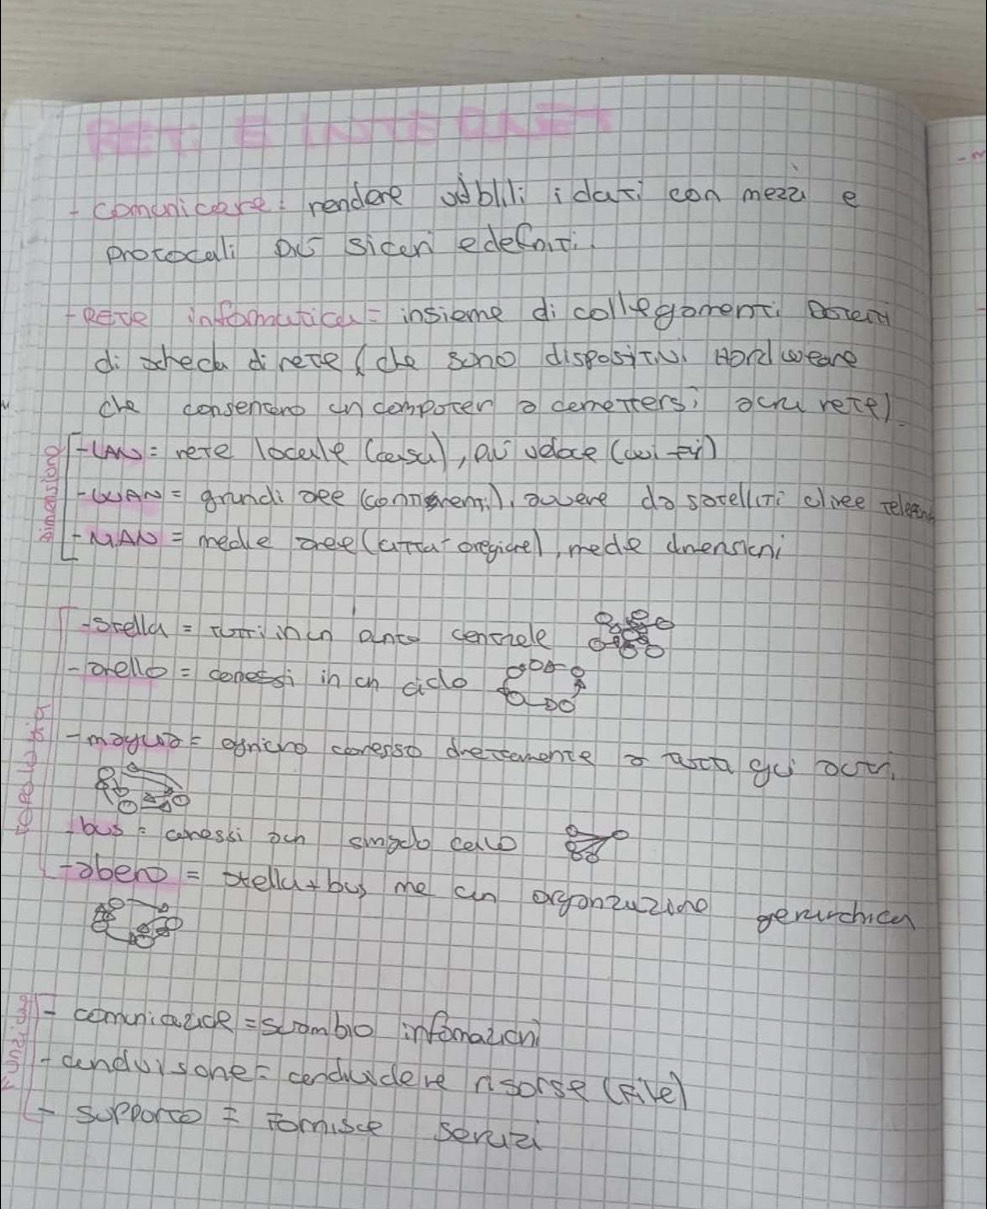 RETI E INTERNET
- comunicare: rendere visibili i dati con mezzi e
protocolli più sicuri e definiti.
- RETE informatica = insieme di collegamenti potenti
di scheda di rete (che sono dispositivi Hardweare
che consentono un computer a connettersi a una rete)
dimensione
- LAN = rete locale (casa), più veloce (wi-fi)
- WAN = grandi aree (continenti), avvere da satelliti o linee telefon
- MAN = medie aree (città o regione), medie dimensioni
topologia
- stella = tutti in un punto centrale
- anello = conessi in un ciclo
- maglia = ognuno conesso direttamente a tutti gli altri.
- bus = conessi a un singolo cavo
- albero = stella + bus me un organizzazione gerarchica
funzione
- comunicazione = scambio informazioni
- condivisone = condividere risorse (file)
- supporto = fornisce servizi